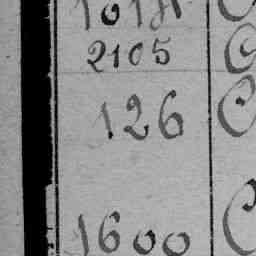 2105
126
1600